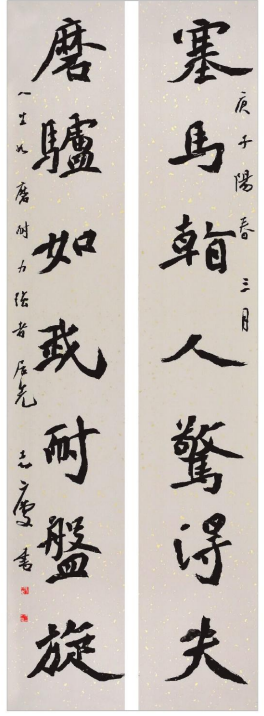 庚子陽春三月
塞馬輸人驚得失
磨驢如我耐盤旋
人生如磨耐力强者居先
書